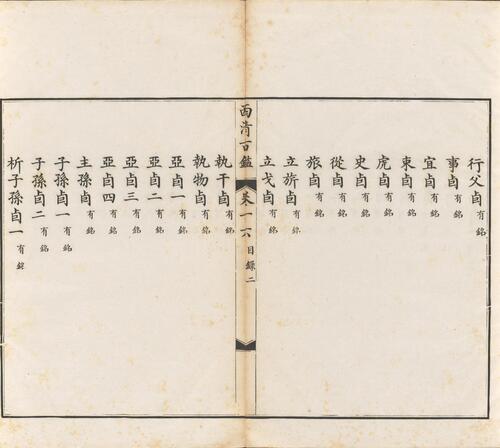 行父卣有銘
事卣有銘
宜卣有銘
束卣有銘
虎卣有銘
史卣有銘
從卣有銘
旅卣有銘
立旂卣有銘
立戈卣有銘
西清古鑑
卷一六目錄二
執干卣有銘
執物卣有銘
亞卣一有銘
亞卣二有銘
亞卣三有銘
亞卣四有銘
主孫卣有銘
子孫卣一有銘
子孫卣二有銘
析子孫卣一有銘